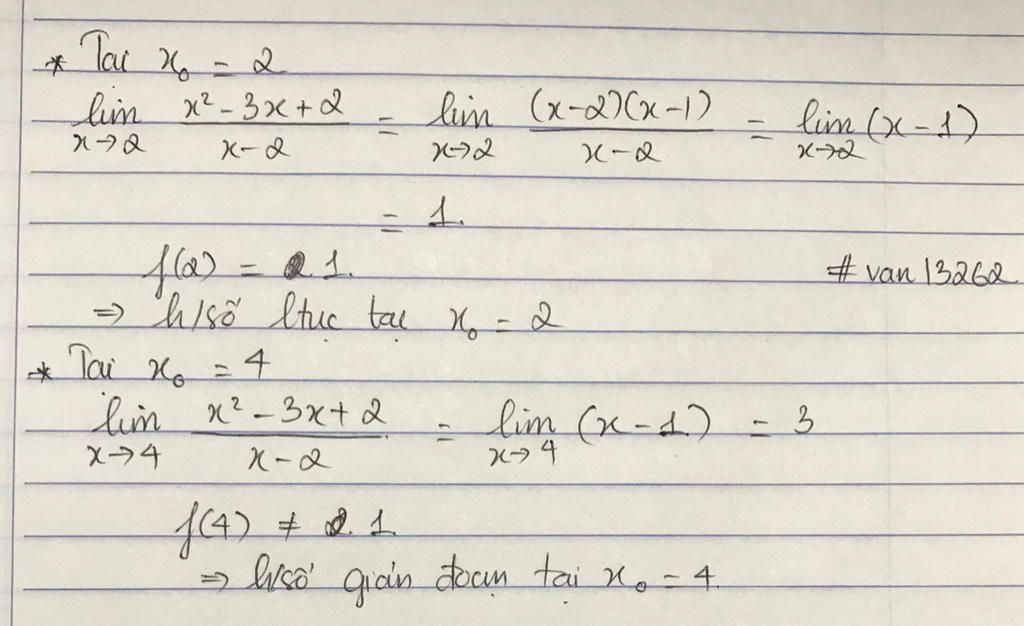 * Tại x₀ = 2
lim x→2 (x² - 3x + 2)/(x - 2) = lim x→2 ((x-2)(x-1))/(x-2) = lim x→2 (x-1)
= 1.
f(2) = 1.
# van 13262
⇒ h/số ltục tại x₀ = 2
* Tại x₀ = 4
lim x→4 (x² - 3x + 2)/(x - 2) = lim x→4 (x - 1) = 3
f(4) ≠ 1
⇒ h/số gián đoạn tại x₀ = 4.